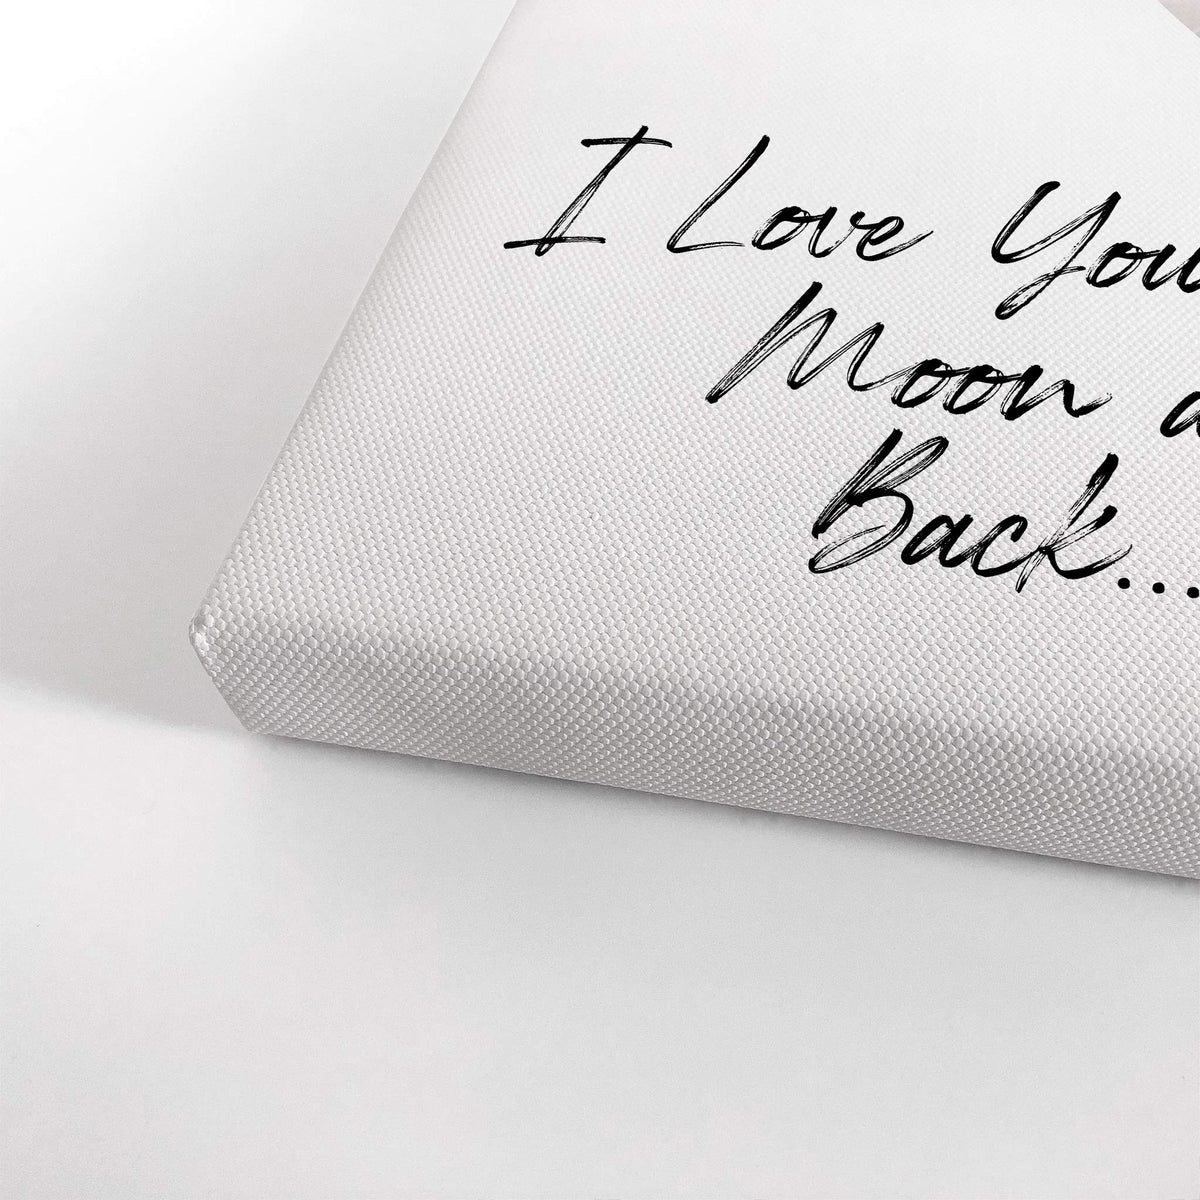 I Love You
Moon a
Back...